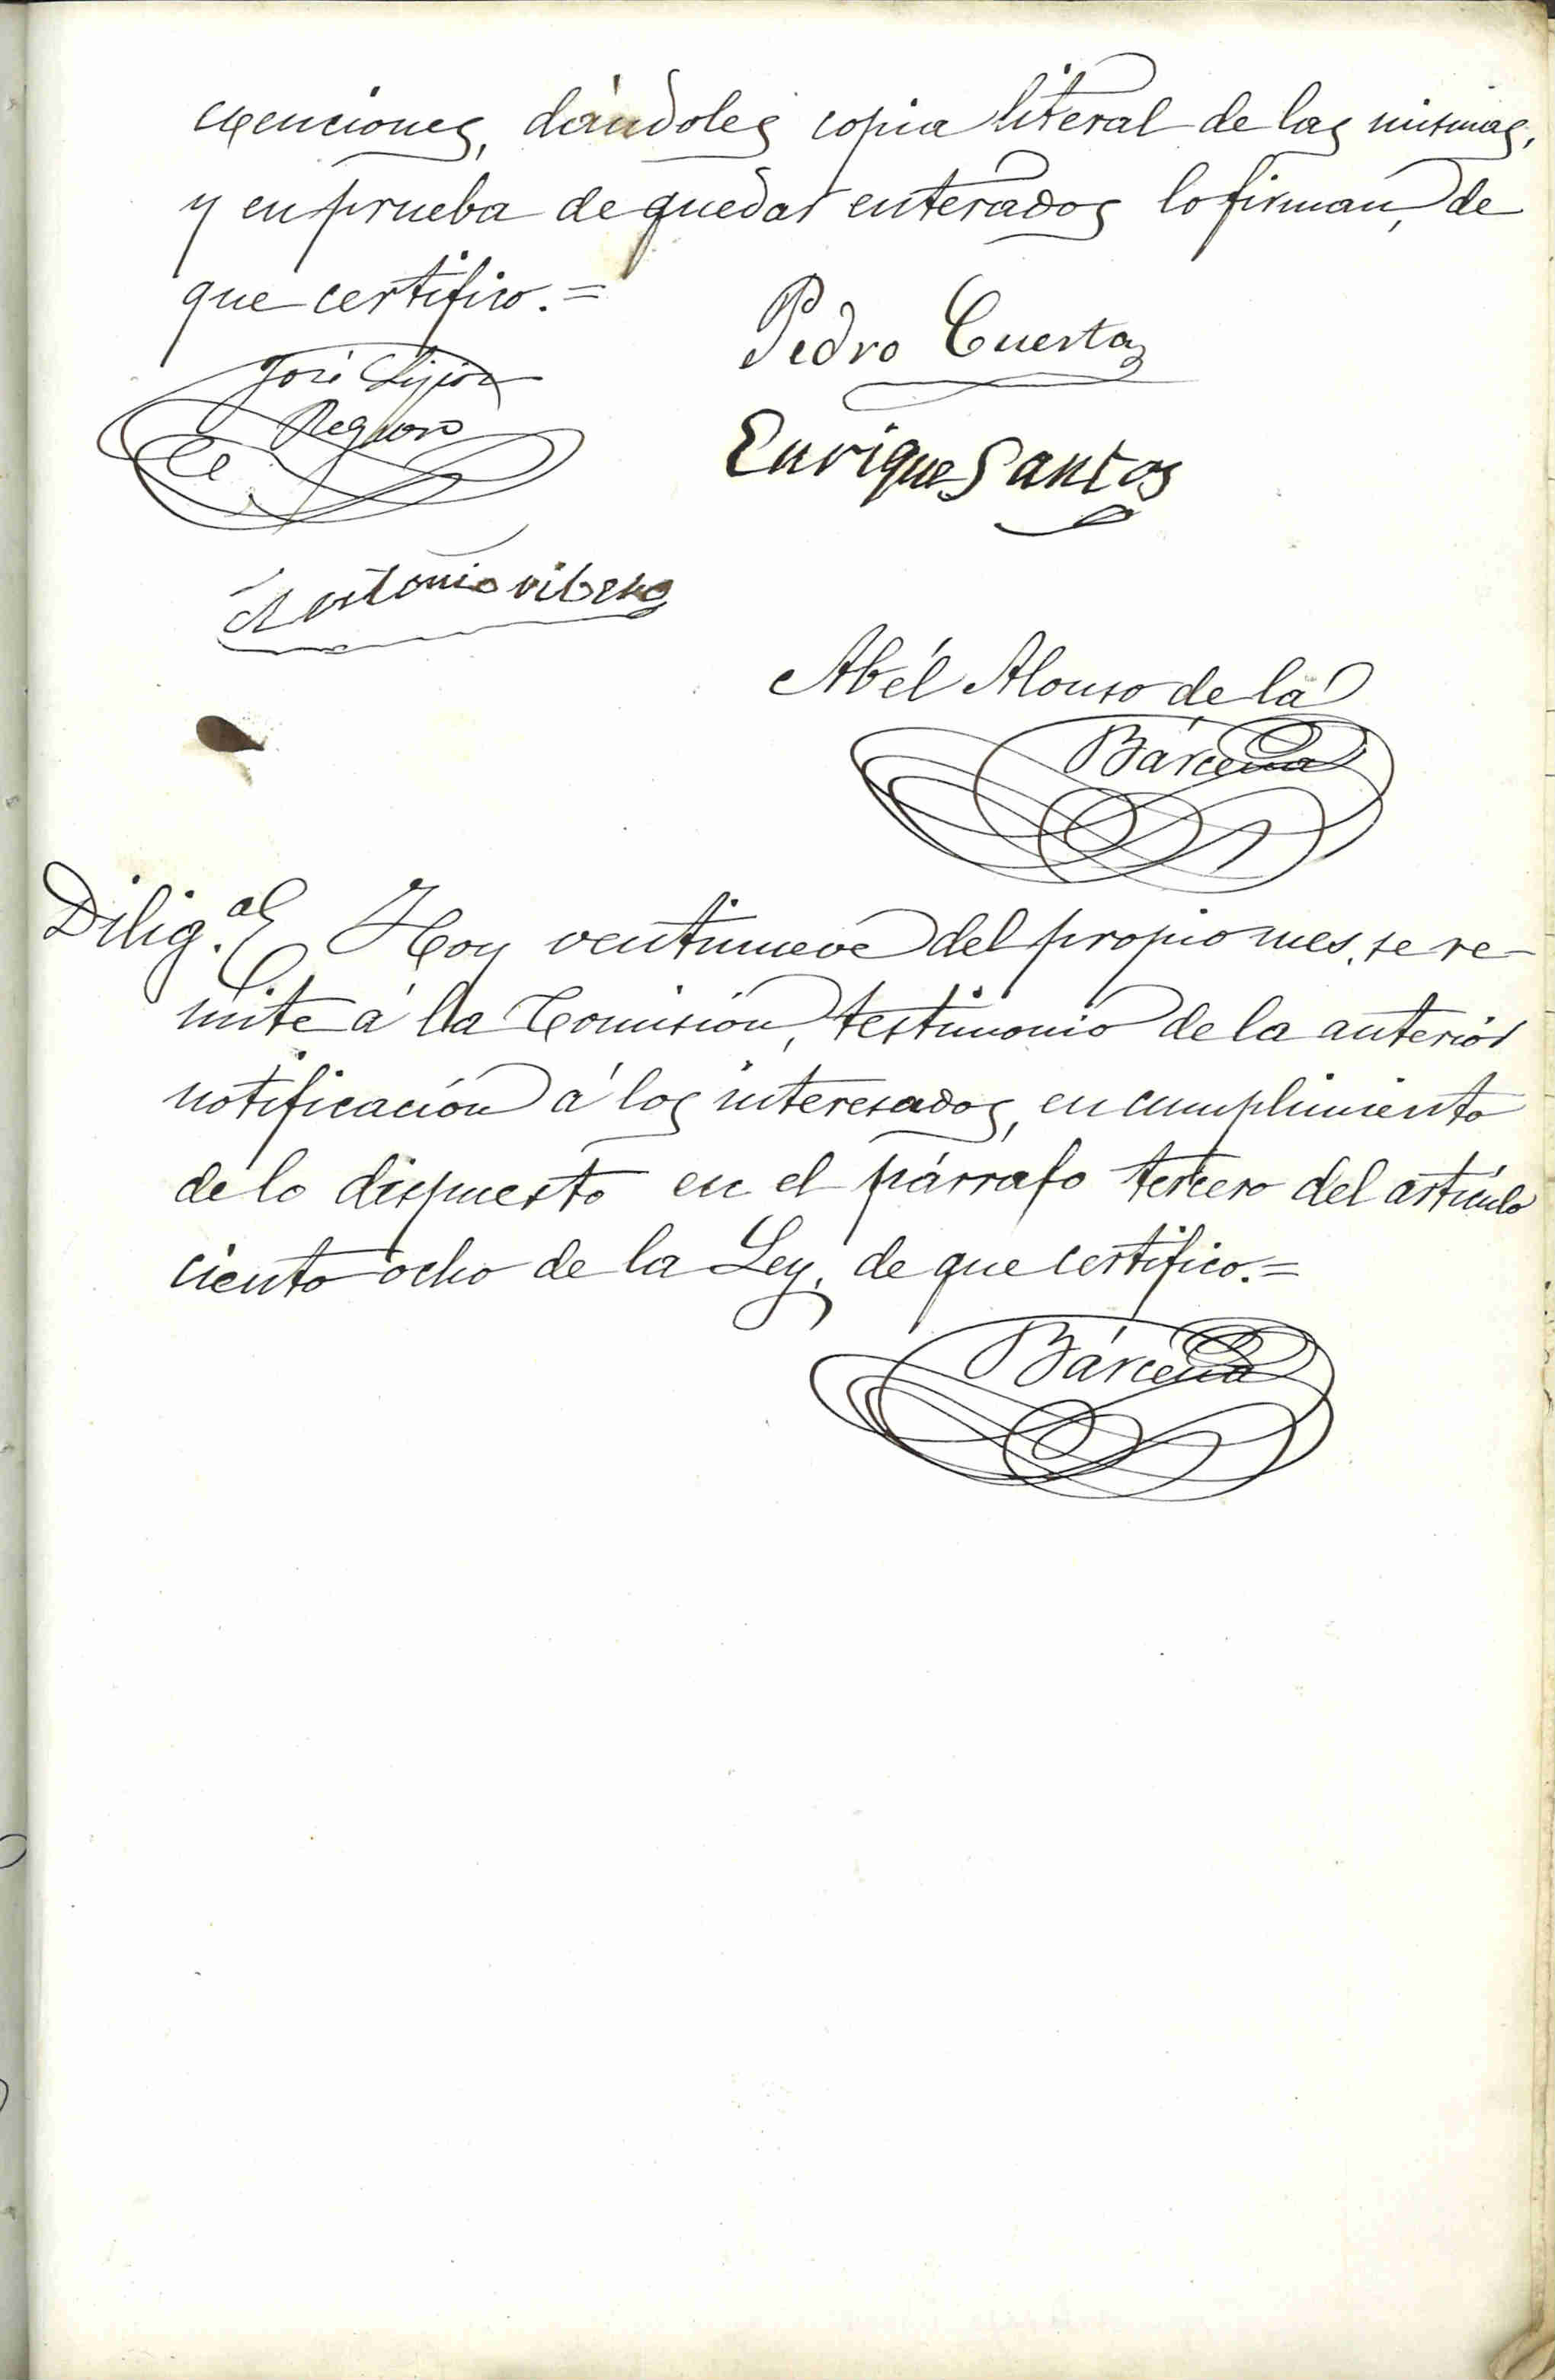 exenciones, dándoles copia literal de las mismas,
y en prueba de quedar enterados lo firman, de
que certifico.=
Pedro Cuesta
José
Reguero
Enrique Santos
Antonio ribero
Abél Alonso de la
Bárcena
Dilig.ª Hoy ventinueve del propio mes, se re-
mite á la Comisión, testimonio de la anterior
notificación á los interesados, en cumplimiento
de lo dispuesto en el párrafo tercero del artículo
ciento ocho de la Ley, de que certifico.=
Bárcena